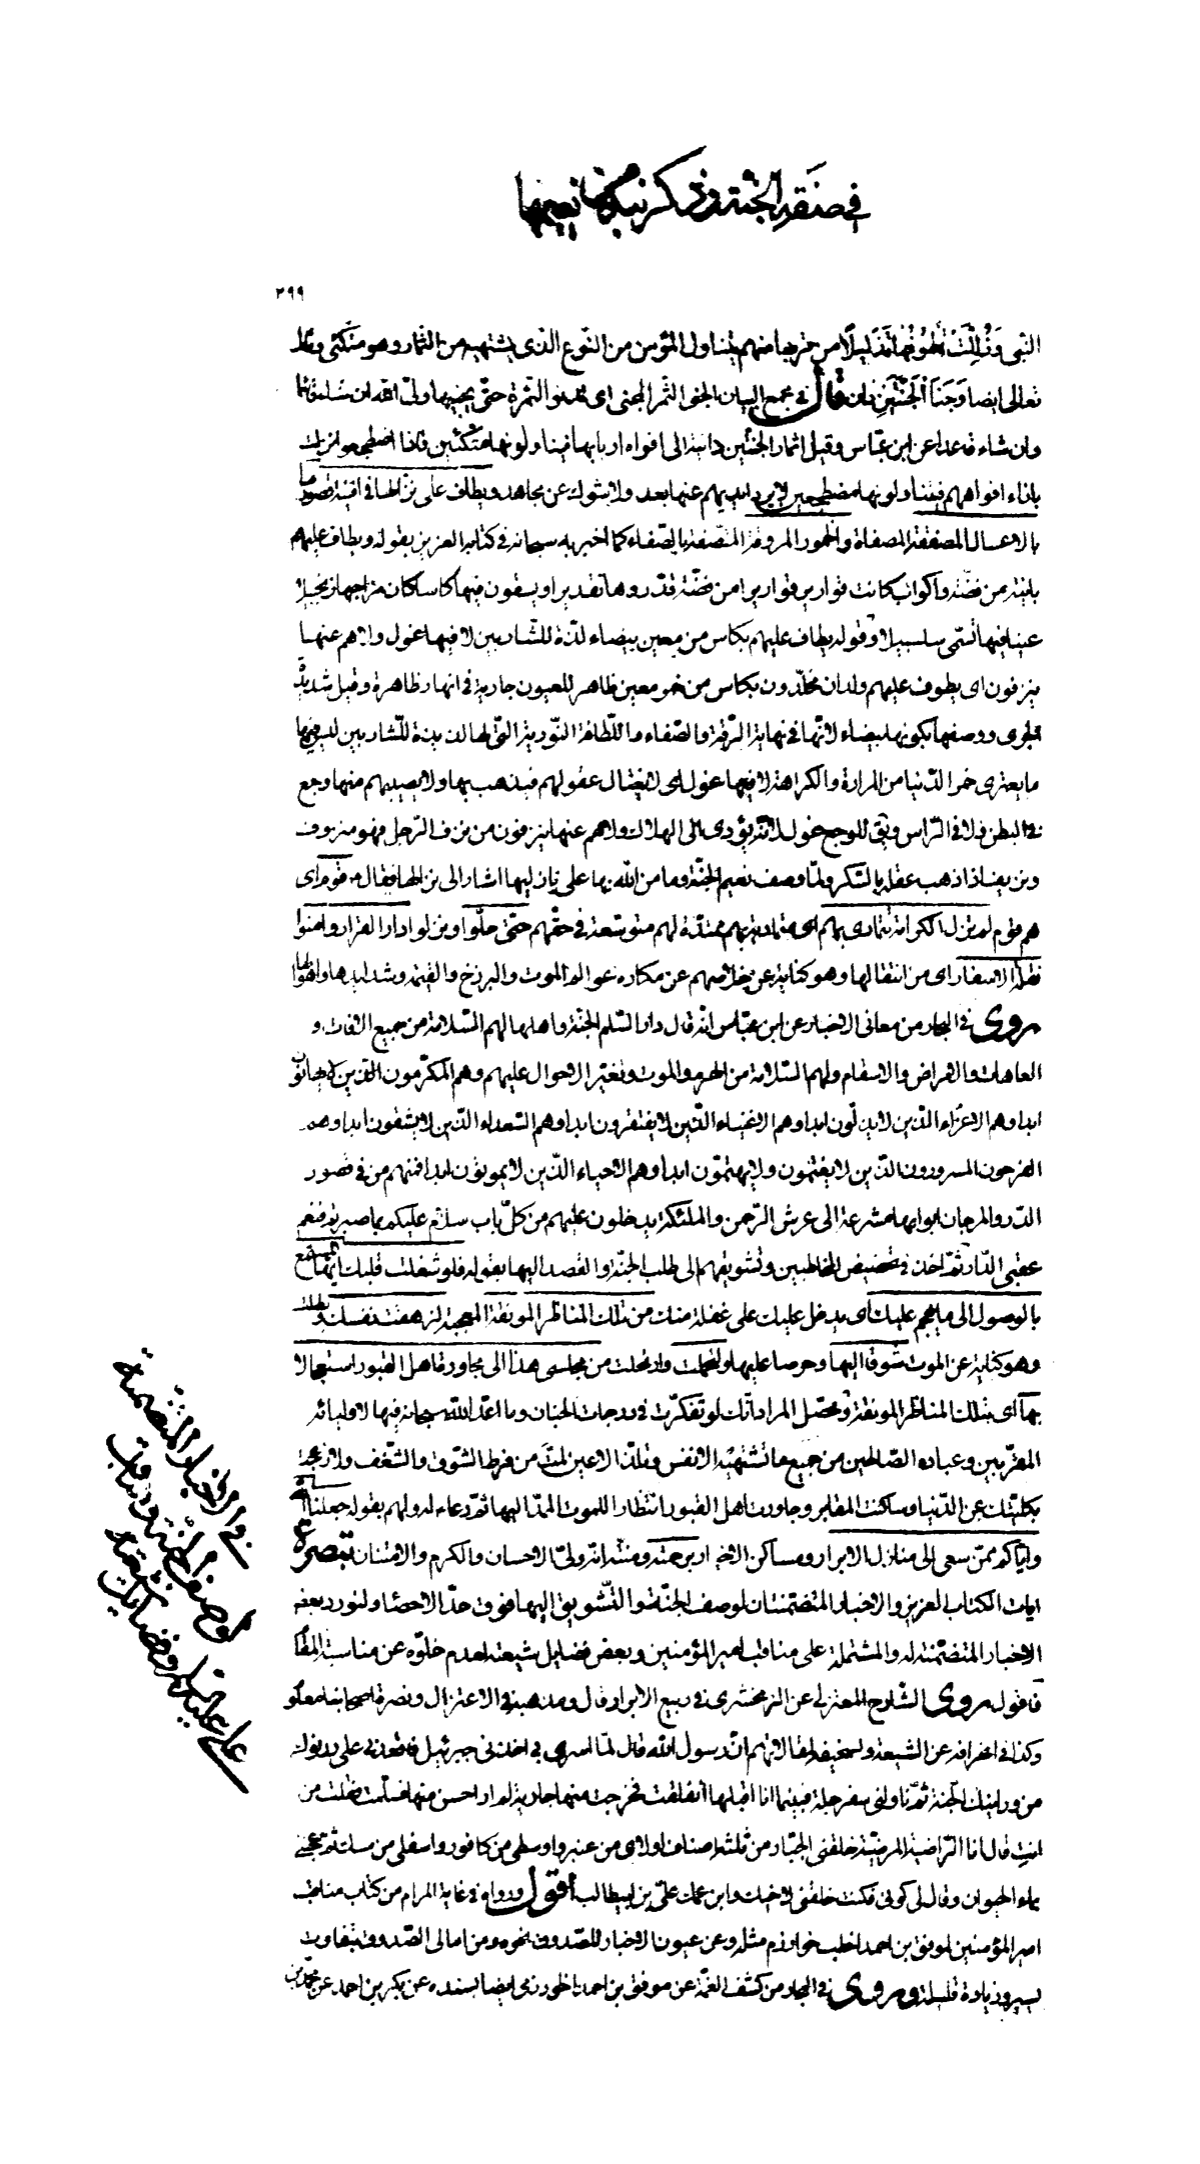 في صفة الجنة وذكر نعيمها
٢٩٩
النبي وَذُلِّلَتْ قُطُوفُهَا تَذْلِيلًا من قربها منهم يتناول المؤمن من النوع الذي يشتهيه من الثمار وهو متكئ وقال
تعالى ايضا وَجَنَا الْجَنَّتَيْنِ دان قال في مجمع البيان الجنى الثمر المجنى اى تدنو الثمرة حتى يجنيها ولى الله ان شاء قائما
وان شاء قاعدا عن ابن عباس وقيل اثمار الجنتين دانية الى افواه اربابها فيتناولونها متكئين فاذا اضطجعوا نزلت
بازاء افواههم فيتناولونها مضطجعين لا يرد ايديهم عنها بعد ولا شوك عن مجاهد ويطاف على نزالها في افنية قصورها
بالاعسال المصفقة المصفاة والخمور المروقة المتصفة بالصفاء كما اخبر به سبحانه في كتابه العزيز بقوله ويطاف عليهم
بانية من فضة واكواب كانت قوارير قواريرا من فضة قدروها تقديرا ويسقون فيها كاسا كان مزاجها زنجبيلا
عينا فيها تسمى سلسبيلا وقوله يطاف عليهم بكاس من معين بيضاء لذة للشاربين لا فيها غول ولا هم عنها
ينزفون اى يطوف عليهم ولدان مخلدون بكاس من خمر معين ظاهر للعيون جارية في انهار ظاهرة وقيل شديدة
الجرى ووصفها بكونها بيضاء لانها في نهاية الرقة والصفاء واللطافة النورية التي لها لذيذة للشاربين ليس فيها
ما يعترى خمر الدنيا من المرارة والكراهة لا فيها غول اى لا يغتال عقولهم فيذهب بها ولا يصيبهم منها وجع
في البطن ولا في الراس ويق للوجع غول لانه يؤدى الى الهلاك ولا هم عنها ينزفون من نزف الرجل فهو منزوف
ونزيف اذا ذهب عقله بالسكر ولما وصف نعيم الجنة وما من الله بها على نازليها اشار الى نزالها فقال قوم اى
هم قوم لم تزل الكرامة تتمادى بهم اى متمادية بهم ممتدة لهم متوسعة في حقهم حتى حلوا ونزلوا دار القرار وامنوا
نقلة الاسفار اى من انتقالها وهو كناية عن خلاصهم عن مكاره عوالم الموت والبرزخ والقيمة وشدايدها واهوالها
روى في البحار من معانى الاخبار عن ابن عباس انه قال دار السلم الجنة واهلها لهم السلامة من جميع الافات و
العاهات والامراض والاسقام ولهم السلامة من الهرم والموت وتغير الاحوال عليهم وهم المكرمون الذين لا يهانون
ابدا وهم الاعزاء الذين لا يذلون ابدا وهم الاغنياء الذين لا يفتقرون ابدا وهم السعداء الذين لا يشقون ابدا وهم
الفرحون المسرورون الذين لا يغتمون ولا يهتمون ابدا وهم الاحياء الذين لا يموتون ابدا فهم من في قصور
الدر والمرجان ابوابها مشرعة الى عرش الرحمن والملئكة يدخلون عليهم من كل باب سلام عليكم بما صبرتم فنعم
عقبى الدار ثم اخذ في تحضيض المخاطبين وتشويقهم الى طلب الجنة والقصد اليها بقوله فلو شغلت قلبك ايها المستمع
بالوصول الى ما يهجم عليك اى يدخل عليك على غفلة منك من تلك المناظر المونقة المعجبة لزهقت نفسك وبطلت
وهو كناية عن الموت شوقا اليها وحرصا عليها ولتحملت وارتحلت من مجلسى هذا الى مجاورة اهل القبور استعجالا
بها اى بتلك المناظر المونقة ومحصل المراد انك لو تفكرت في درجات الجنان وما اعد الله سبحانه فيها لاوليائه
المقربين وعباده الصالحين من جميع ما تشتهيه الانفس وتلذ الاعين لمت من فرط الشوق والشغف ولانزعجت
بكليتك عن الدنيا وسكنت المقابر وجاورت اهل القبور انتظارا للموت الممد اليها ثم دعا له ولهم بقوله جعلنا الله
واياكم ممن سعى الى منازل الابرار ومساكن الاخيار برحمته ومنته انه ولى الاحسان والكرم والامتنان تبصرة
ايات الكتاب العزيز والاخبار المتضمنتان لوصف الجنة والتشويق اليها فوق حد الاحصاء ولنورد بعض
الاخبار المتضمنة له والمشتملة على مناقب امير المؤمنين وبعض فضايل شيعته لعدم خلوه عن مناسبة المقام
فاقول روى الشارح المعتزلي عن الزمخشرى في ربيع الابرار قال ومذهبه في الاعتزال ونصرة اصحابنا معلوم
وكذا في انحرافه عن الشيعة وتسخيفه لمقالاتهم ان رسول الله قال لما اسرى بى اخذنى جبرئيل فاقعدنى على درنوك
من درانيك الجنة ثم ناولنى سفرجلة فبينما انا اقلبها انفلقت فخرجت منها جارية لم ار احسن منها فسلمت فقلت من
انت قالت انا الراضية المرضية خلقنى الجبار من ثلثة اصناف اعلاى من عنبر واوسطى من كافور واسفلى من مسك ثم عجننى
بماء الحيوان وقال لى كونى فكنت خلقنى لاخيك وابن عمك على بن ابيطالب اقول ورواه في غاية المرام من كتاب مناقب
امير المؤمنين لموفق بن احمد اخطب خوارزم مثله وعن عيون الاخبار للصدوق نحوه ومن امالى الصدوق بتفاوت
يسير وزيادة قليلة وروى في البحار من كشف الغمة عن موفق بن احمد الخوارزمى ايضا بسنده عن بكر بن احمد عن محمد بن
في الاخبار المتضمنة
لوصف الجنة ومناقب
على عليه السلم وفضايل شيعته